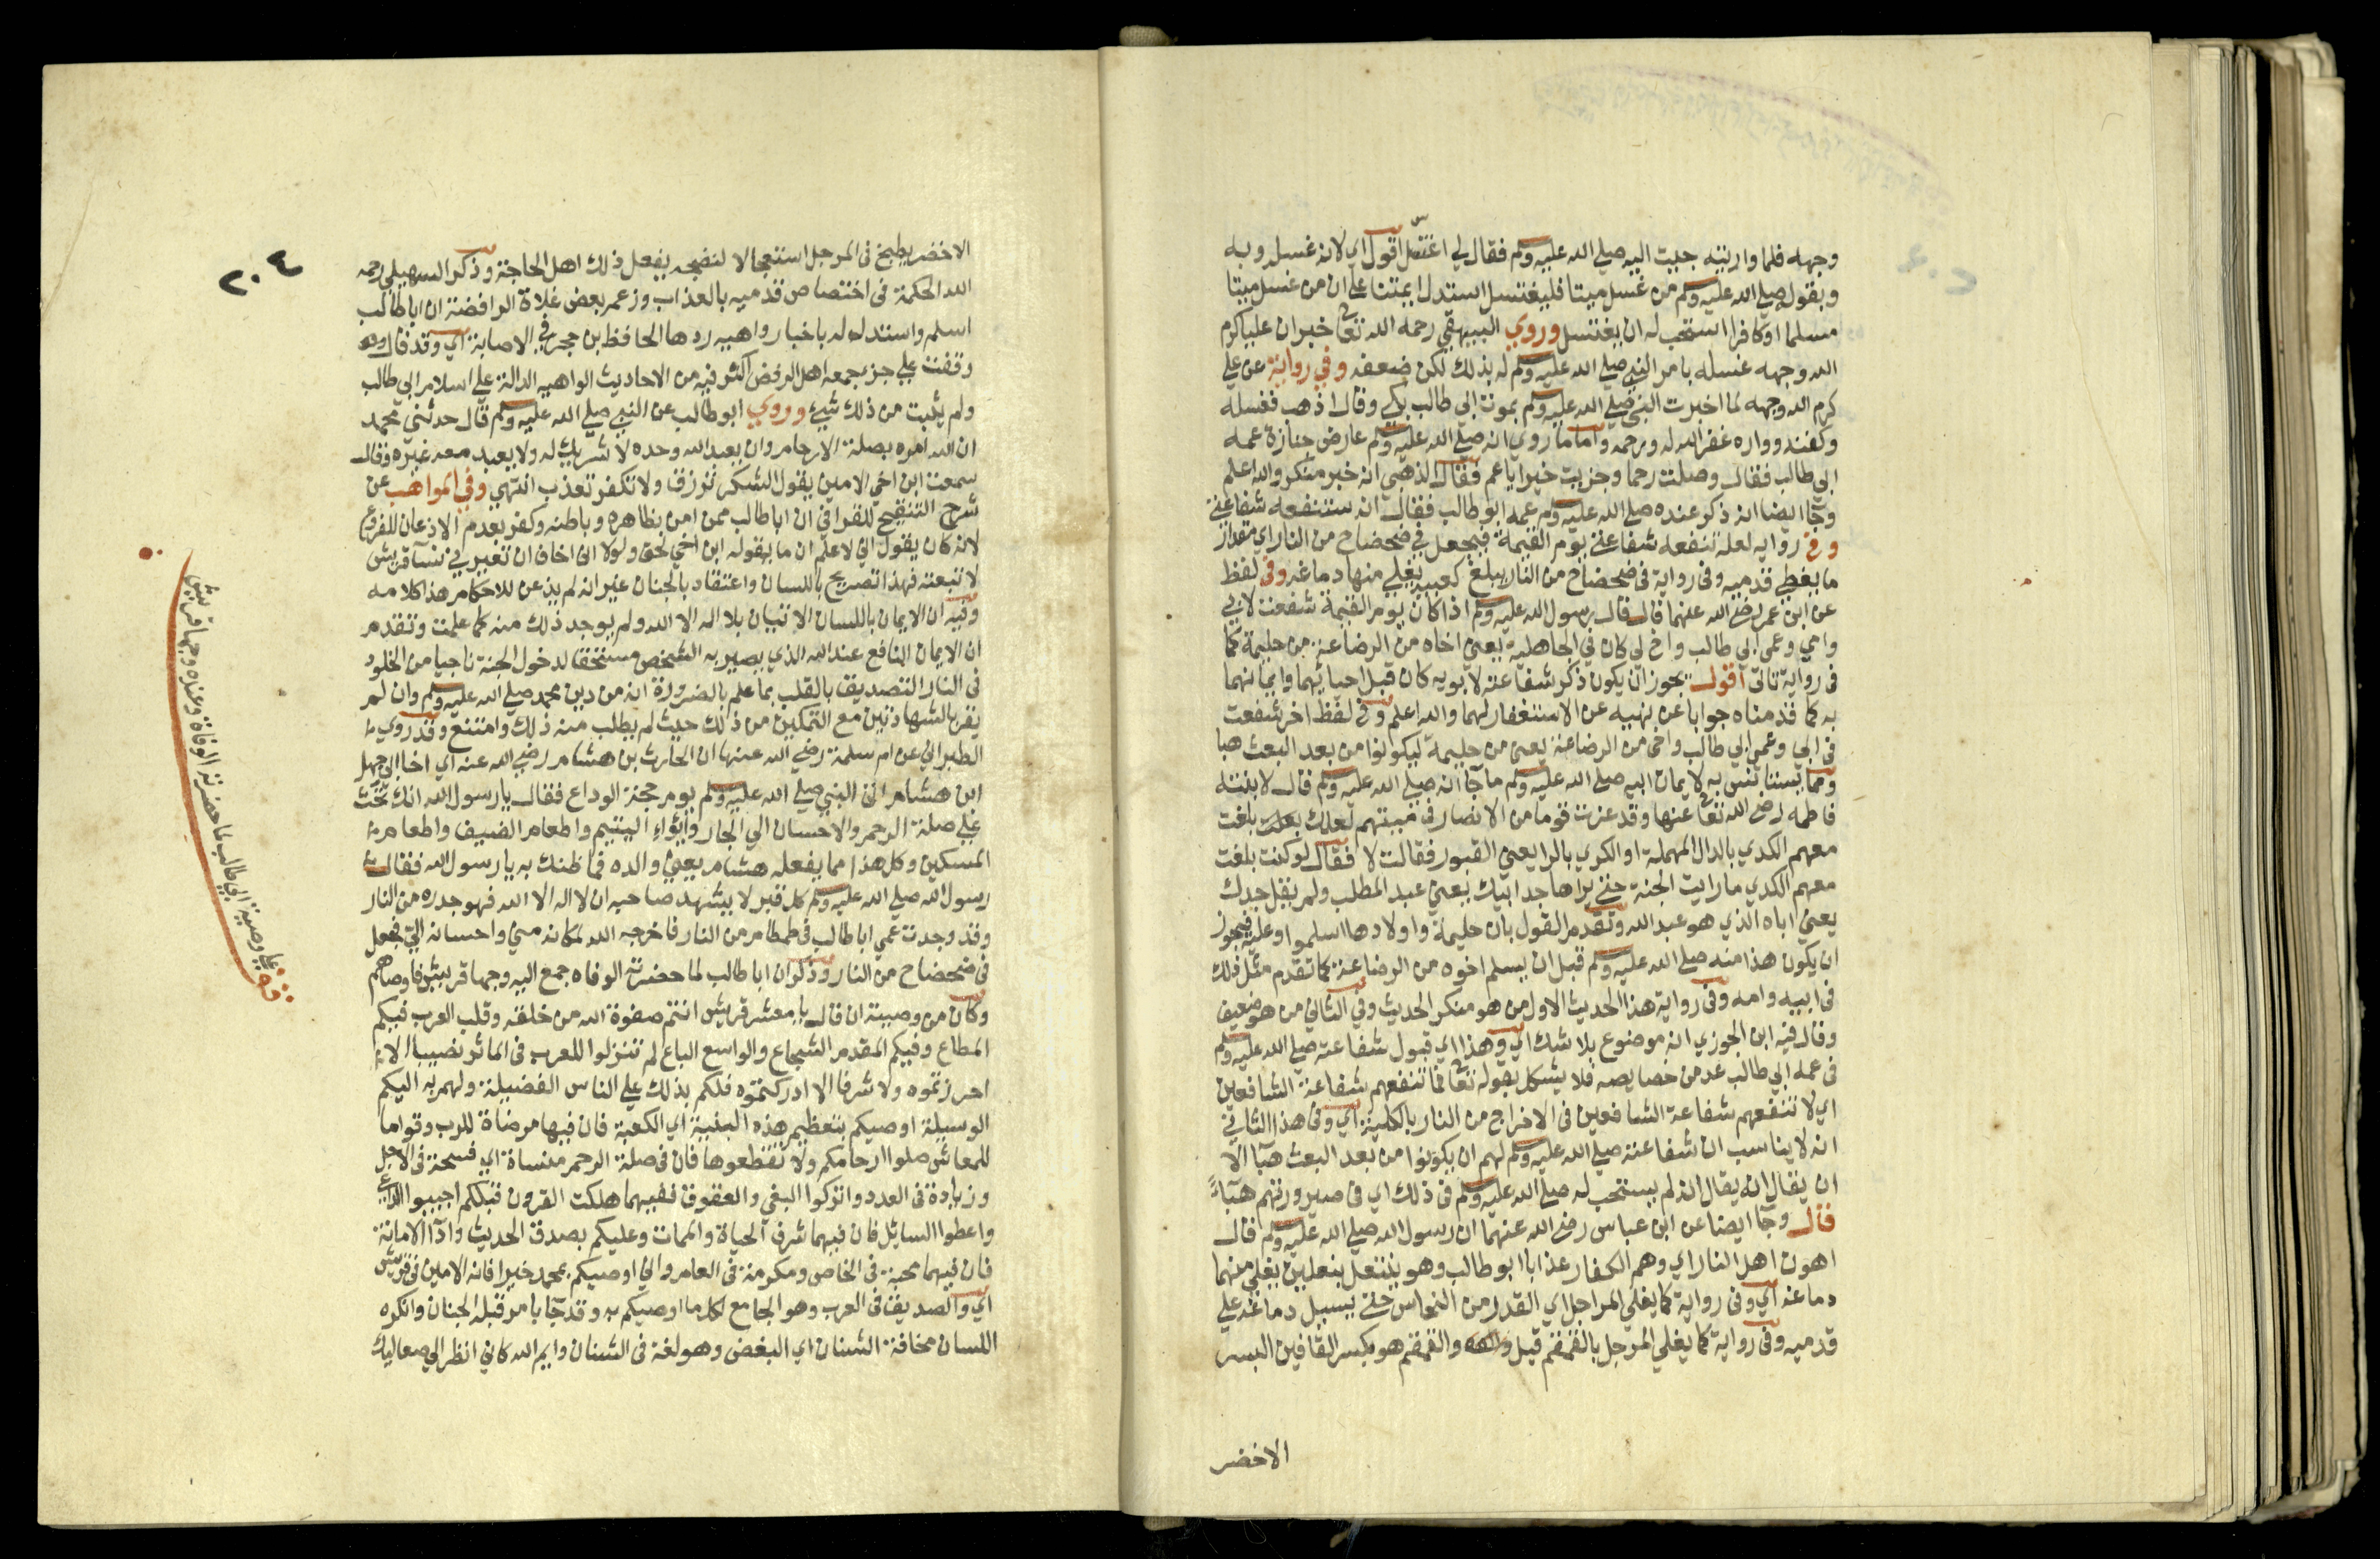 وجهه فلما واريته جيت اليه صلي الله عليه وسلم فقال لي اغتسل اقول اي لانه غسله وبه
وبقوله صلي الله عليه وسلم من غسل ميتا فليغتسل استدل ايمتنا علي ان من غسل ميتا
مسلما اوكافرا استحب له ان يغتسل وروي البيهقي رحمه الله تعالى خبر ان عليا كرم
الله وجهه غسله بامر النبي صلي الله عليه وسلم له بذلك لكن ضعفه وفي رواية عن علي
كرم الله وجهه لما اخبرت النبي صلي الله عليه وسلم بموت ابي طالب بكي وقال اذهب فغسله
وكفنه وواره غفر الله له ورحمه واما ما روي انه صلي الله عليه وسلم عارض جنازة عمه
ابي طالب فقال وصلت رحما وجزيت خيرا ياعم فقال الذهبي انه خبر منكر والله اعلم
وجآ ايضا انه ذكر عنده صلي الله عليه وسلم عمه ابو طالب فقال انه ستنفعه شفاعتي
وفي روايه لعله تنفعه شفاعتي يوم القيمة فيجعل في ضحضاح من النار اي مقدار
ما يغطي قدميه وفي رواية في ضحضاح من النار يبلغ كعبيه يغلي منها دماغه وفي لفظ
عن ابن عمر رضي الله عنهما قال قال رسول الله عليه وسلم اذا كان يوم القيمة شفعت لابي
وامي وعمي ابي طالب واخ لي كان في الجاهلية يعني اخاه من الرضاعة من حليمة كما
في رواية تاتي اقول يجوز ان يكون ذكر شفاعته لابويه كان قبل احيائهما وايمانهما
به كما قدمناه جوابا عن نهيه عن الاستغفار لهما والله اعلم وفي لفظ اخر شفعت
في ابي وعمي ابي طالب واخي من الرضاعة يعني من حليمة ليكونوا من بعد البعث هبا
ومما يستانس به لايمان ابيه صلي الله عليه وسلم ما جآ انه صلي الله عليه وسلم قال لابنته
فاطمه رضي الله تعالى عنها وقد عزت قوما من الانصار في ميتهم لعلك بلغت
معهم الكدي بالدال المهملة او الكري بالرا يعني القبور فقالت لا فقال لو كنت بلغت
معهم الكدي ما رايت الجنة حتي يراها جد ابيك يعني عبد المطلب ولم يقل جدك
يعني اباه الذي هو عبد الله وتقدم القول بان حليمة واولادها اسلموا وعليه فيجوز
ان يكون هذا منه صلي الله عليه وسلم قبل ان يسلم اخوه من الرضاعة كما تقدم مثل ذلك
في ابيه وامه وفي رواية هذا الحديث الاول من هو منكر الحديث وفي الثاني من هو ضعيف
وقال فيه ابن الجوزي انه موضوع بلا شك اي وهذا اي قبول شفاعته صلي الله عليه وسلم
في عمه ابي طالب عد من خصايصه فلا يشكل بقوله تعالى فما تنفعهم شفاعة الشافعين
اي لا تنفعهم شفاعة الشافعين في الاخراج من النار بالكلية اي وفي هذا الثاني
انه لا يناسب ان شفاعته صلي الله عليه وسلم لهم ان يكونوا من بعد البعث هبآ الا
ان يقال انه يقال انه لم يستحب له صلي الله عليه وسلم في ذلك اي في صيرورتهم هبآءً
قال وجآ ايضا عن ابن عباس رضي الله عنهما ان رسول الله صلي الله عليه وسلم قال
اهون اهل النار اي وهم الكفار عذابا ابو طالب وهو ينتعل بنعلين يغلي منهما
دماغه اي وفي رواية كما يغلي المراجل اي القدر من النحاس حتي يسيل دماغه علي
قدميه وفي رواية كما يغلي المرجل بالقمقم قيل والقمقم هو بكسر القافين البسر
الاخضر
٢٠٤
الاخضر يطبخ في المرجل استعجالا لنضجه يفعل ذلك اهل الحاجة وذكر السهيلي رحمه
الله الحكمة في اختصاص قدميه بالعذاب وزعم بعض غلاة الرافضة ان ابا طالب
اسلم واستدل له باخبار واهيه ردها الحافظ بن حجر في الاصابة اي وقد قال
وقفت علي جزء جمعه اهل الرفض اكثر فيه من الاحاديث الواهيه الدالة علي اسلام ابي طالب
ولم يثبت من ذلك شيئ وروي ابو طالب عن النبي صلي الله عليه وسلم قال حدثني محمد
ان الله امره بصلة الارحام وان يعبد الله وحده لا شريك له ولا يعبد معه غيره وقال
سمعت ابن اخي الامين يقول اشكر ترزق ولا تكفر تعذب انتهي وفي المواهب عن
شرح التنقيح للقرافي ان ابا طالب ممن امن بظاهره وباطنه وكفر بعدم الاذعان للفروع
لانه كان يقول اني لاعلم ان ما يقوله ابن اخي لحق ولولا اني اخاف ان تعيرني نسآ قريش
لاتبعته فهذا تصريح باللسان واعتقاد بالجنان غير انه لم يذعن للاحكام هذا كلامه
وفيه ان الايمان باللسان الاتيان بلا اله الا الله ولم يوجد ذلك منه كما علمت وتقدم
ان الايمان النافع عند الله الذي يصير به الشخص مستحقا لدخول الجنة ناجيا من الخلود
في النار التصديق بالقلب بما علم بالضرورة انه من دين محمد صلي الله عليه وسلم وان لم
يقر بالشهادتين مع التمكين من ذلك حيث لم يطلب منه ذلك وامتنع وقد روي
الطبراني عن ام سلمة رضي الله عنها ان الحارث بن هشام رضي الله عنه اي اخا ابي جهل
ابن هشام اتي النبي صلي الله عليه وسلم يوم حجة الوداع فقال يا رسول الله انك تحث
علي صلة الرحم والاحسان الي الجار وايواء اليتيم واطعام الضيف واطعام
المسكين وكل هذا مما يفعله هشام يعني والده فما ظنك به يا رسول الله فقال
رسول الله صلي الله عليه وسلم كل قبر لا يشهد صاحبه ان لا اله الا الله فهو جدره من النار
وقد وجدت عمي ابا طالب في طمطام من النار فاخرجه الله لمكانه مني واحسانه الي فجعل
في ضحضاح من النار وذكر ان ابا طالب لما حضرته الوفاه جمع اليه وجها قريش فاوصاهم
وكان من وصيته ان قال يا معشر قريش انتم صفوة الله من خلقه وقلب العرب فيكم
المطاع وفيكم المقدم الشجاع والواسع الباع لم تتركوا للعرب في الماثر نصيبا الا
احرزتموه ولا شرفا الا ادركتموه فلكم بذلك علي الناس الفضيلة ولهم به اليكم
الوسيلة اوصيكم بتعظيم هذه البنية اي الكعبة فان فيها مرضاة للرب وقواما
للمعاش صلوا ارحامكم ولا تقطعوها فان في صلة الرحم منساة اي فسحة في الاجل
وزيادة في العدد واتركوا البغي والعقوق ففيهما هلكت القرون قبلكم اجيبوا الداعي
واعطوا السايل فان فيهما شرف الحياة والممات وعليكم بصدق الحديث وادآ الامانة
فان فيهما محبة في الخاص ومكرمة في العام واني اوصيكم بمحمد خيرا فانه الامين في قريش
اي والصديق في العرب وهو الجامع لكل ما اوصيكم به وقد جآ بامر قبله الجنان وانكره
اللسان مخافة الشنان اي البغض وهو لغة في الشنان وايم الله كاني انظر الي صعاليك
قف علي وصية ابي طالب لما حضرته الوفاة وعنده وجها قريش